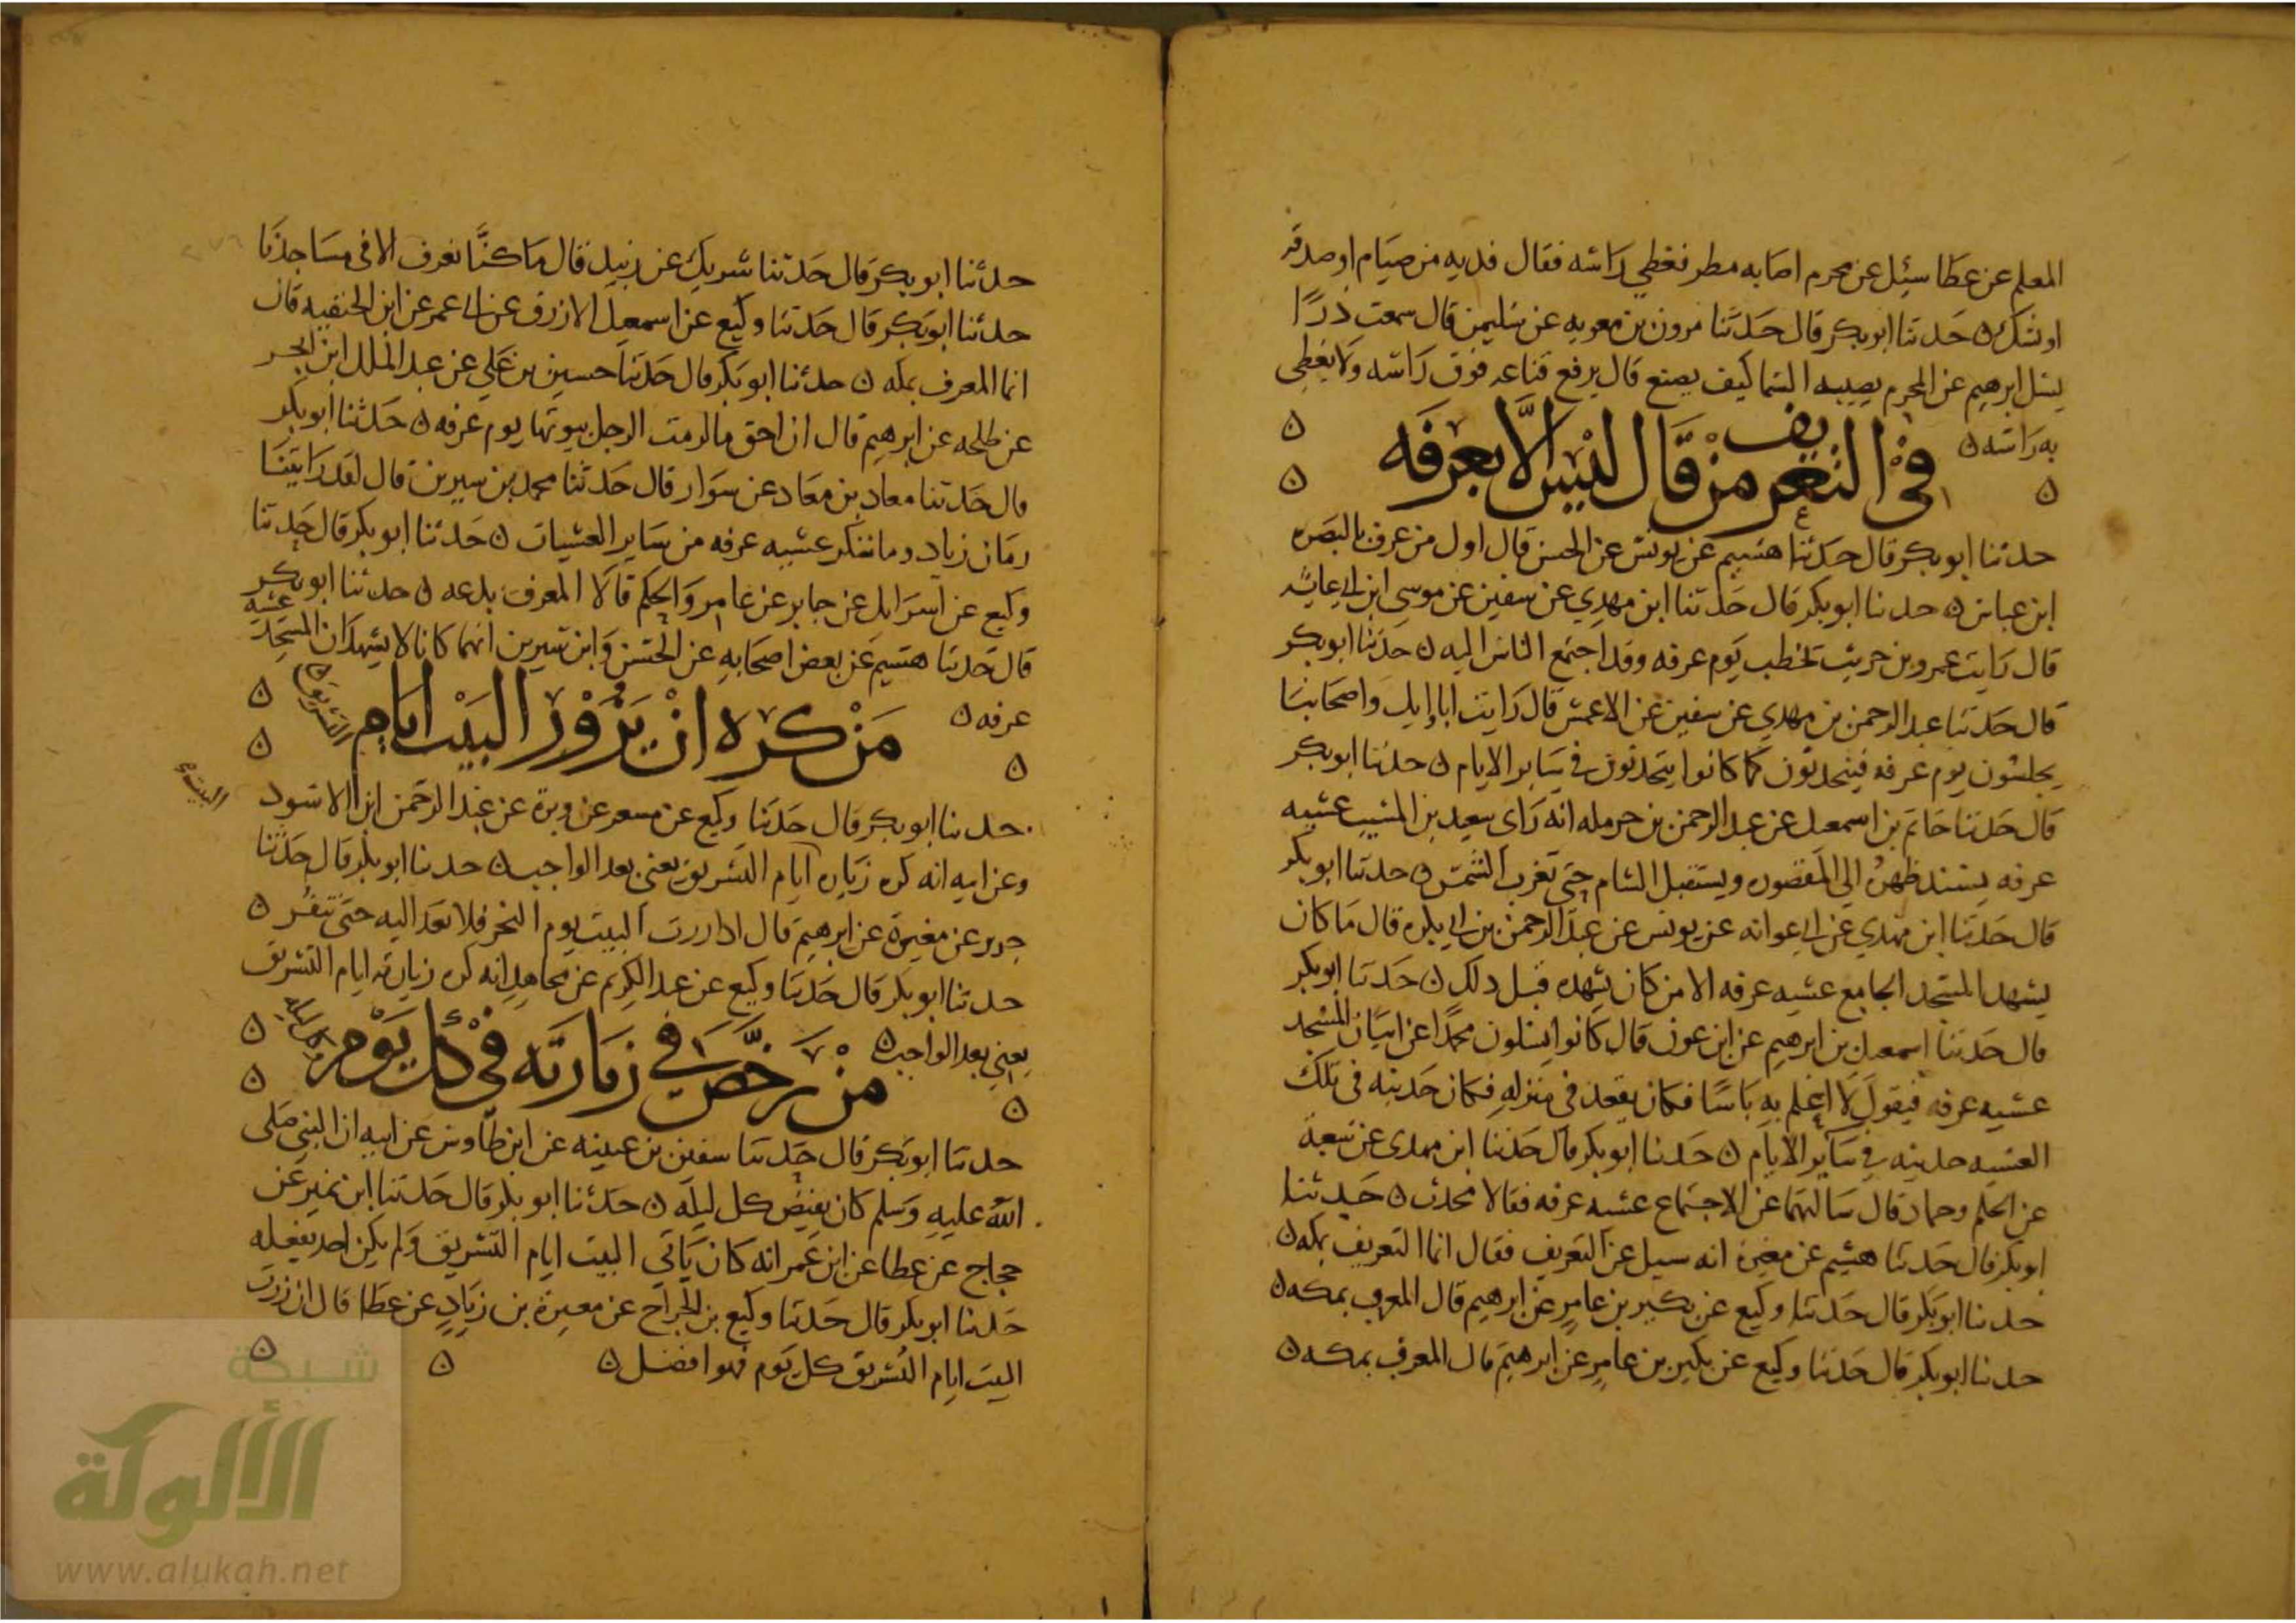 المعلم عن عطا سئل عن محرم اصابه مطر فغطي راسه فقال فديه من صيام او صدقه
او نسك ٥ حدثنا ابو بكر قال حدثنا مرون بن معويه عن سليمن قال سمعت ذرًا
يسل ابرهيم عن المحرم يصيبه السما كيف يصنع قال يرفع قناعه فوق راسه ولا يغطي
به راسه ٥
في التعريف من قال ليس الا بعرفه
حدثنا ابو بكر قال حدثنا هشيم عن يونس عن الحسن قال اول من عرف بالبصره
ابن عباس ٥ حدثنا ابو بكر قال حدثنا ابن مهدي عن سفين عن موسى ابن ابي عايشه
قال رايت عمرو بن حريث يخطب يوم عرفه وقد اجتمع الناس اليه ٥ حدثنا ابو بكر
قال حدثنا عبد الرحمن بن مهدي عن سفين عن الاعمش قال رايت ابا وايل واصحابنا
يجلسون يوم عرفه فيتحدثون كما كانوا يتحدثون في ساير الايام ٥ حدثنا ابو بكر
قال حدثنا حاتم بن اسمعيل عن عبد الرحمن بن حرمله انه راى سعيد بن المسيب عشيه
عرفه يسند ظهره الى المقصوره ويستقبل الشام حتى تغرب الشمس ٥ حدثنا ابو بكر
قال حدثنا ابن مهدي عن ابي عوانه عن يونس عن عبد الرحمن بن ابي بكره قال ما كان
يشهد المسجد الجامع عشيه عرفه الا من كان يشهده قبل ذلك ٥ حدثنا ابو بكر
قال حدثنا اسمعيل بن ابرهيم عن ابن عون قال كانوا يسلون محمدًا عن اتيان المسجد
عشيه عرفه فيقول لا اعلم به باسًا فكان يقعد في منزله فكان حديثه في تلك
العشيه حديثه في ساير الايام ٥ حدثنا ابو بكر قال حدثنا ابن مهدي عن شعبة
عن الحكم وحماد قال سالتهما عن الاجتماع عشيه عرفه فقالا محدث ٥ حدثنا
ابو بكر قال حدثنا هشيم عن مغيرة انه سيل عن التعريف فقال انما التعريف بمكه ٥
حدثنا ابو بكر قال حدثنا وكيع عن بكير بن عامر عن ابرهيم قال المعرف بمكه ٥
حدثنا ابو بكر قال حدثنا وكيع عن بكير بن عامر عن ابرهيم قال المعرف بمكه ٥
حدثنا ابو بكر قال حدثنا شريك عن زبيد قال ما كنَّا نعرف الا في مساجدنا
حدثنا ابو بكر قال حدثنا وكيع عن اسمعيل الازرق عن ابي عمر عن ابن الحنفيه قال
انما المعرف بمكه ٥ حدثنا ابو بكر قال حدثنا حسين بن علي عن عبد الملك ابن ابجر
عن طلحه عن ابرهيم قال ان احق ما لزمت الرجل بيوتها يوم عرفه ٥ حدثنا ابو بكر
قال حدثنا معاذ بن معاذ عن سوار قال حدثنا محمد بن سيرين قال لقد رايتنا
زمان زياد وما ننكر عشيه عرفه من ساير العشيات ٥ حدثنا ابو بكر قال حدثنا
وكيع عن اسرايل عن جابر عن عامر والحكم قالا المعرف بدعه ٥ حدثنا ابو بكر
قال حدثنا هشيم عن بعض اصحابه عن الحسن وابن سيرين انهما كانا لا يشهدان المسجد عشيه
عرفه ٥
من كره ان يزور البيت ايام التشريق ٥
البيت
حدثنا ابو بكر قال حدثنا وكيع عن مسعر عن وبرة عن عبد الرحمن ابن الاسود
وعن ابيه انه كره زياره ايام التشريق يعني بعد الواجب ٥ حدثنا ابو بكر قال حدثنا
جرير عن مغيرة عن ابرهيم قال اذا زرت البيت يوم النحر فلا تعد اليه حتى تنفر ٥
حدثنا ابو بكر قال حدثنا وكيع عن عبد الكريم عن مجاهد انه كره زيارته ايام التشريق
يعني بعد الواجب ٥
من رخص في زيارته في كل يوم
حدثنا ابو بكر قال حدثنا سفين بن عيينه عن ابن طاوس عن ابيه ان النبي صلى
الله عليه وسلم كان يفيض كل ليله ٥ حدثنا ابو بكر قال حدثنا ابن نمير عن
حجاج عن عطا عن ابن عمر انه كان ياتي البيت ايام التشريق ولم يكن احد يفعله
حدثنا ابو بكر قال حدثنا وكيع بن الجراح عن مغيرة بن زياد عن عطا قال ان زرت
البيت ايام التشريق كل يوم فهو افضل ٥
شبكة
الألوكة
www.alukah.net